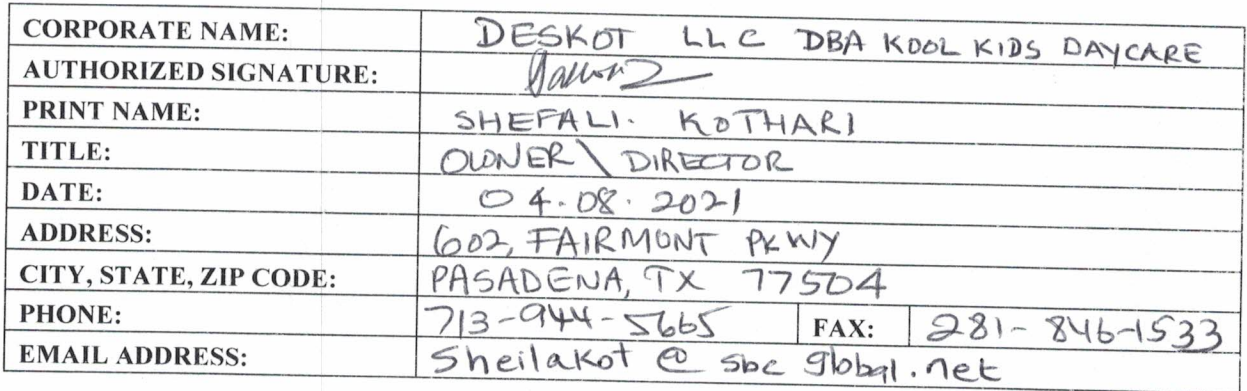 CORPORATE NAME: DESKOT LLC DBA KOOL KIDS DAYCARE
AUTHORIZED SIGNATURE:
PRINT NAME: SHEFALI. KOTHARI
TITLE: OWNER \ DIRECTOR
DATE: 04.08.2021
ADDRESS: 602, FAIRMONT PKWY
CITY, STATE, ZIP CODE: PASADENA, TX 77504
PHONE: 713-944-5665 FAX: 281-846-1533
EMAIL ADDRESS: Sheilakot @ sbc global.net